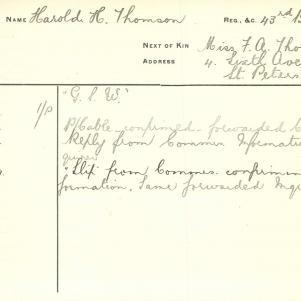 NAME Harold H. Thomson REG., &C. 43rd B
NEXT OF KIN Miss F. A. Tho
ADDRESS 4. Sixth Ave
St. Peters
"G. S. W."
1/P P/Cable confirmed forwarded
Reply from Commin Informati
"Slip from Commrs. confirmin
formation. Same forwarded Inq